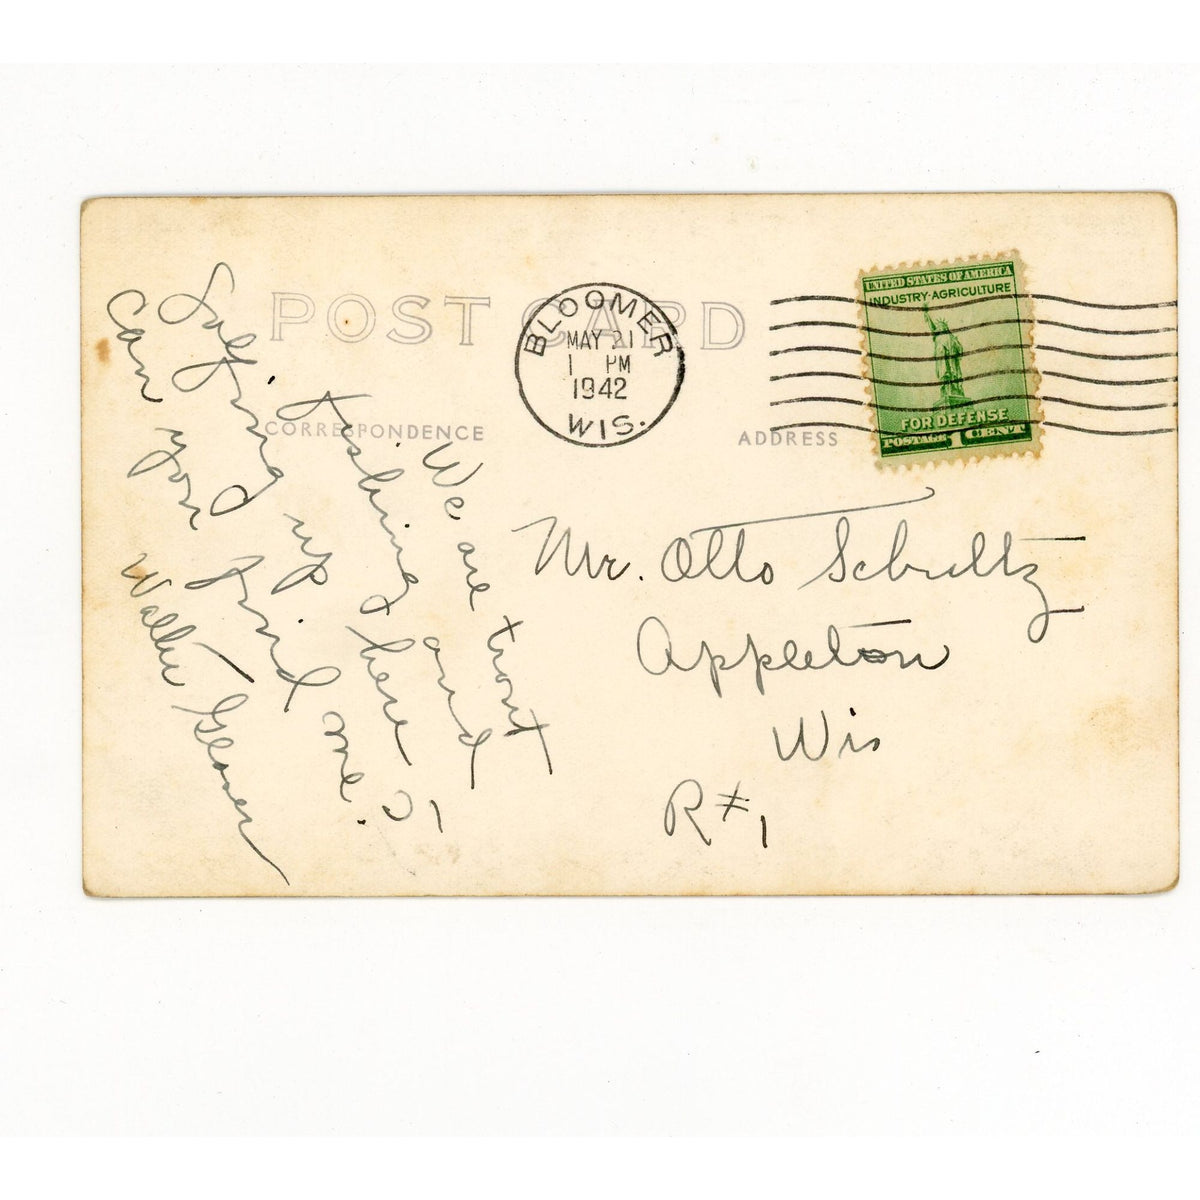 POST CARD
BLOOMER
MAY 21
1 PM
1942
WIS.
UNITED STATES OF AMERICA
INDUSTRY·AGRICULTURE
FOR DEFENSE
POSTAGE 1 CENT
CORRESPONDENCE
ADDRESS
We are trout
fishing and
Loafing up here
can you find me.
Glover
Mr. Otto Schultz
Appleton
Wis
R#1